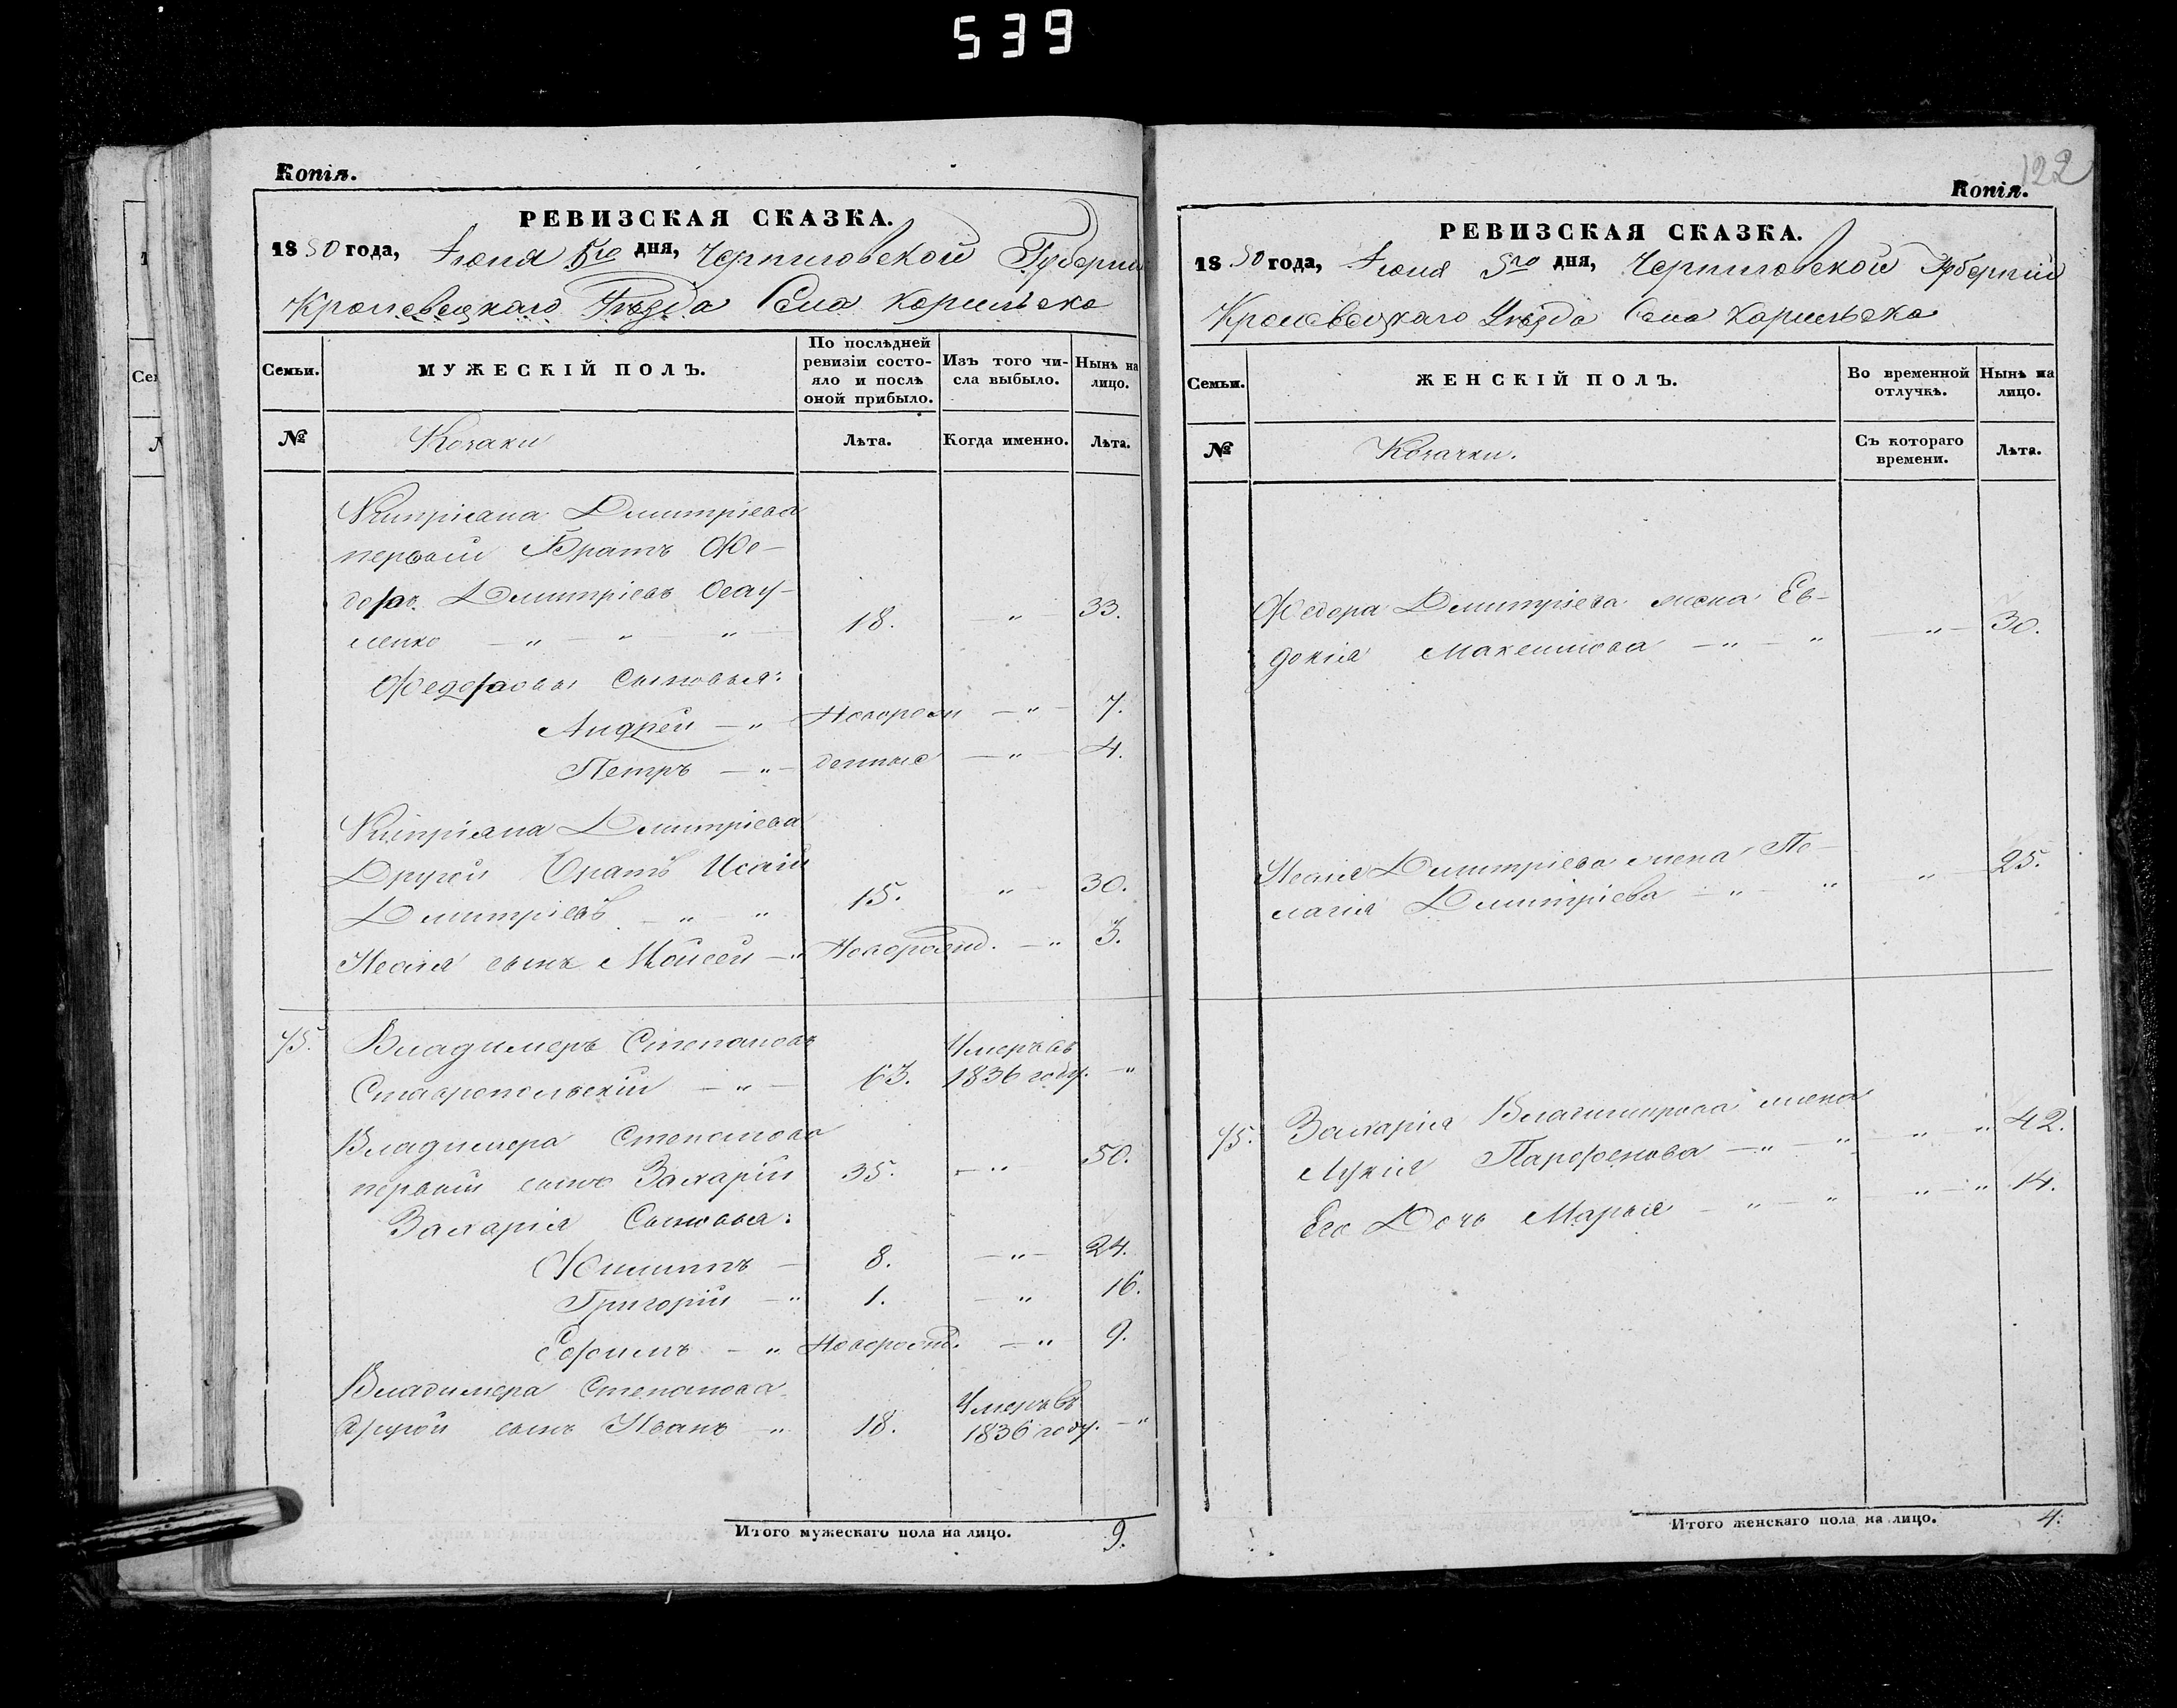 539
Копія.
РЕВИЗСКАЯ СКАЗКА.
1850 года, Іюня 5го дня, Черниговской Губерніи
Кролевецкаго Уезда Села Корильска
Семьи.
МУЖЕСКІЙ ПОЛЪ.
По послѣдней ревизіи состо-
яло и послѣ оной прибыло.
Изъ того чи-
сла выбыло.
Нынѣ на
лицо.
№
Козаки
Лѣта.
Когда именно.
Лѣта.
Кипріана Димитріева
первый Братъ Фе-
доръ Димитріевъ Осау-
ленко — „ — „ — „ — 18. — „ — 33.
Федоровы Сыновья:
Андрей — „ Новорож — „ — 7.
Петръ — „ — денные — „ — 4.
Кипріяна Димитріева
Другой Братъ Исаій
Димитріевъ — „ — „ 15. „ — 30.
Исаія сынъ Мойсей — „ Новорожд. — „ 3.
75. Владимеръ Степановъ Умеръ въ
Ставропольскій — „ — 63. 1836 году. — „
Владимера Степанова
первый сынъ Захарій 35. — „ — 50.
Захарія Сыновья:
Филиппъ — 8. — „ — 24.
Григорій — „ 1. — „ 16.
Ефимъ — „ Новорожд. — „ 9.
Владимера Степанова Умеръ въ
другой сынъ Иванъ — „ 18. 1836 году. — „
Итого мужескаго пола на лицо. 9.
122
Копія.
РЕВИЗСКАЯ СКАЗКА.
1850 года, Іюня 5го дня, Черниговской Губерніи
Кролевецкаго Уѣзда Села Корильска
Семьи.
ЖЕНСКІЙ ПОЛЪ.
Во временной
отлучкѣ.
Нынѣ на
лицо.
№
Козачки.
Съ котораго
времени.
Лѣта.
Федора Димитріева жена Ев-
докія Максимова — „ — „ — „ — 30.
Исаія Димитріева жена Пе-
лагія Димитріева — „ — „ „ 25.
75. Захарія Владимирова жена
Лукія Парфенова — „ — „ — „ — „ 42.
Его Дочь Марья — „ — „ — „ — „ 14.
Итого женскаго пола на лицо. 4.